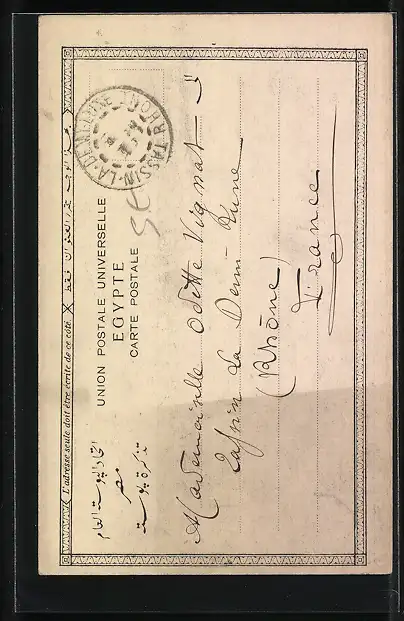 L'adresse seule doit être écrite de ce côté
UNION POSTALE UNIVERSELLE
EGYPTE
CARTE POSTALE
اتحاد البوستة العام
مصر
تذكرة بوستة
TASSIN-LA-DEMI-LUNE RHONE
Mademoiselle Odette Vignat
Tassin la Demi-Lune
(Rhône)
France